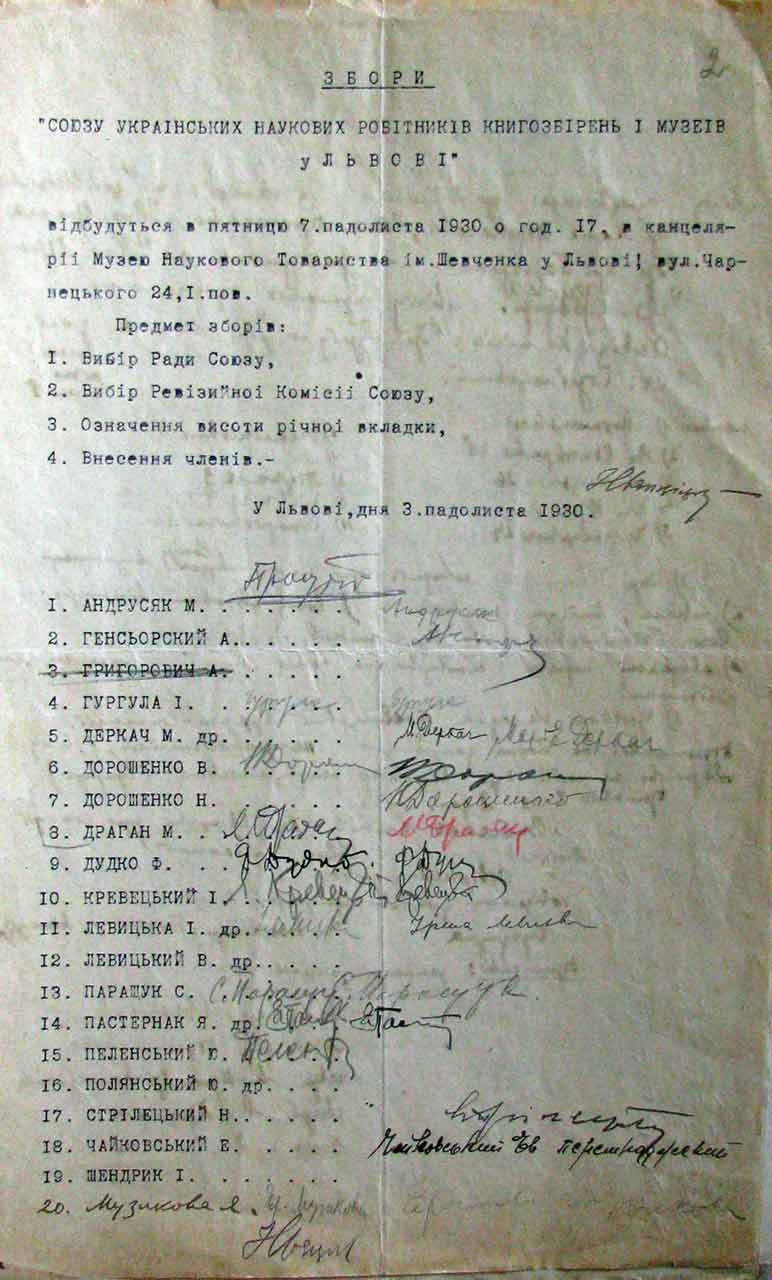 2
ЗБОРИ
"СОЮЗУ УКРАІНСЬКИХ НАУКОВИХ РОБІТНИКІВ КНИГОЗБІРЕНЬ І МУЗЕІВ
у ЛЬВОВІ"
відбудуться в пятницю 7.падолиста 1930 о год. 17, в канцеля-
ріі Музею Наукового Товариства ім.Шевченка у Львові, вул.Чар-
нецького 24,І.пов.
Предмет зборів:
1. Вибір Ради Союзу,
2. Вибір Ревізийноі Комісіі Союзу,
3. Означення висоти річноі вкладки,
4. Внесення членів.-
У Львові,дня 3.падолиста 1930.
1. АНДРУСЯК М. . . . . . . Андрусяк
2. ГЕНСЬОРСКИЙ А. . . . . .
3. ГРИГОРОВИЧ А. . . . . .
4. ГУРГУЛА І. . . . . . . Гургула
5. ДЕРКАЧ М. др. . . . . . М.Деркач Деркач
6. ДОРОШЕНКО В. . . . . .
7. ДОРОШЕНКО Н. . . . . . НДорошенко
8. ДРАГАН М. . . М.Драган
9. ДУДКО Ф. . . . ФДудко.
10. КРЕВЕЦЬКИЙ І. . . . . . Кревецький
11. ЛЕВИЦЬКА І. др. . . . . . Ірина Левицька
12. ЛЕВИЦЬКИЙ В. др. . . . .
13. ПАРАЩУК С. С.Паращук. Паращук.
14. ПАСТЕРНАК Я. др. . . . .
15. ПЕЛЕНСЬКИЙ Ю. . . . . . Пеленський
16. ПОЛЯНСЬКИЙ Ю. др. . . . .
17. СТРІЛЕЦЬКИЙ Н. . . . . .
18. ЧАЙКОВСЬКИЙ Е. . . . . . Чайковський Ев
19. ШЕНДРИК І. . . . . . .
20. Музикова Я.